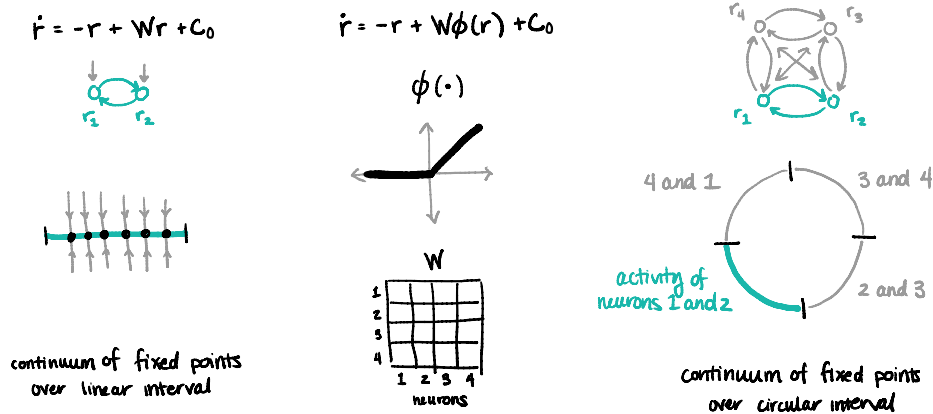 ṙ = -r + Wr + C₀
r₁ r₂
continuum of fixed points
over linear interval
ṙ = -r + Wϕ(r) + C₀
ϕ(·)
W
1
2
3
4
1 2 3 4
neurons
r₄ r₃
r₁ r₂
4 and 1
3 and 4
activity of
neurons 1 and 2
2 and 3
continuum of fixed points
over circular interval